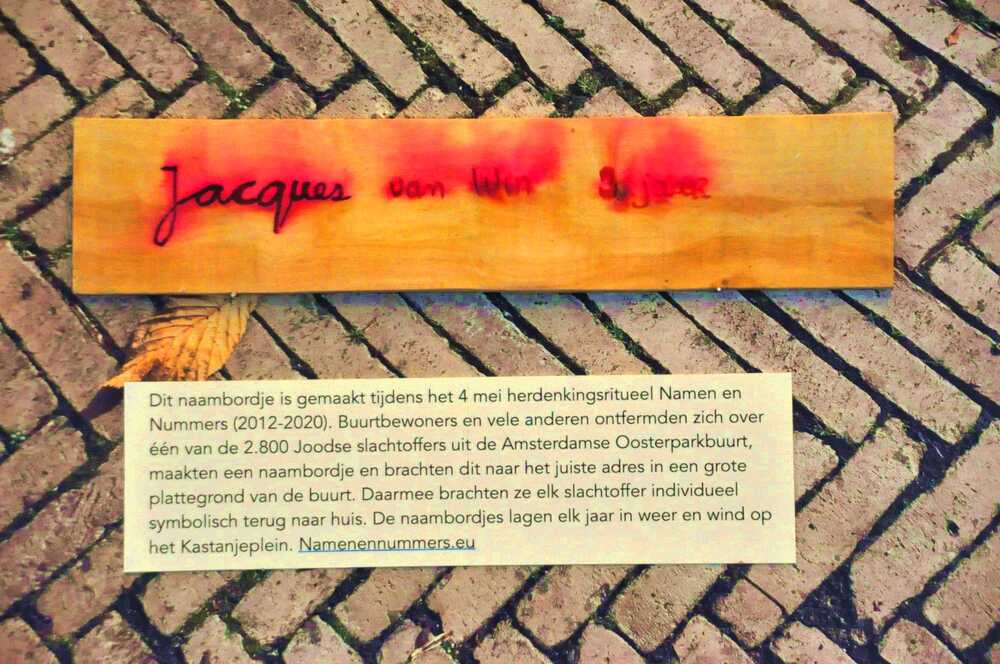 Jacques van Win
Dit naambordje is gemaakt tijdens het 4 mei herdenkingsritueel Namen en
Nummers (2012-2020). Buurtbewoners en vele anderen ontfermden zich over
één van de 2.800 Joodse slachtoffers uit de Amsterdamse Oosterparkbuurt,
maakten een naambordje en brachten dit naar het juiste adres in een grote
plattegrond van de buurt. Daarmee brachten ze elk slachtoffer individueel
symbolisch terug naar huis. De naambordjes lagen elk jaar in weer en wind op
het Kastanjeplein. Namenennummers.eu